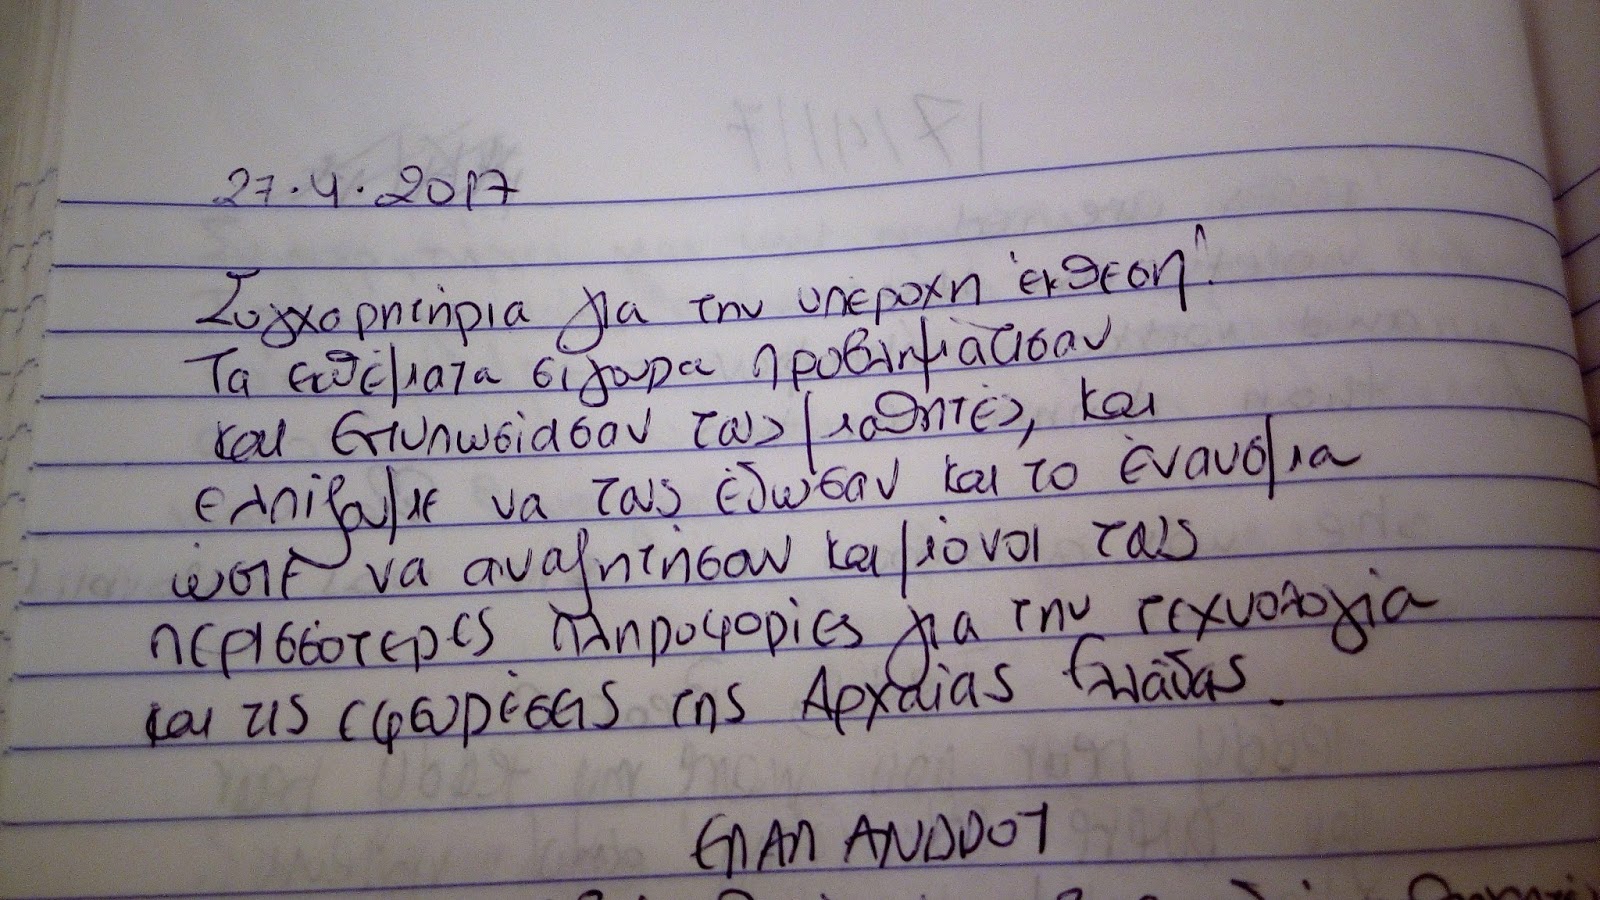 27.4.2017
Συγχαρητήρια για την υπέροχη έκθεση!
Τα εκθέματα σίγουρα προβλημάτισαν
και εντυπωσίασαν τους μαθητές, και
ελπίζουμε να τους έδωσαν και το έναυσμα
ώστε να αναζητήσουν και μόνοι τους
περισσότερες πληροφορίες για την τεχνολογία
και τις εφευρέσεις της Αρχαίας Ελλάδας.
ΕΠΑΛ